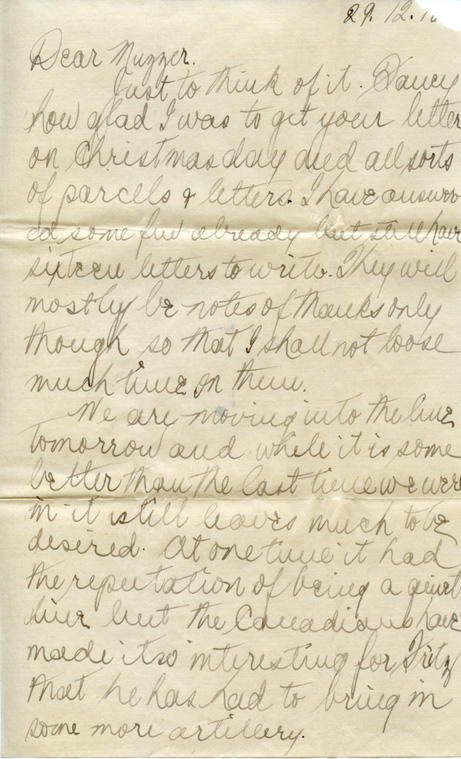 29.12.1
Dear Muzzer.
Just to think of it. Fancy
how glad I was to get your letter
on Christmas day and all sorts
of parcels & letters. I have answer
ed some few already but still have
sixteen letters to write. They will
mostly be notes of thanks only
though so that I shall not loose
much time on them.
We are moving into the line
tomorrow and while it is some
better than the last time we were
in it still leaves much to be
desired. At one time it had
the reputation of being a quiet
line but the Canadians have
made it so interesting for Fritz
that he has had to bring in
some more artillery.